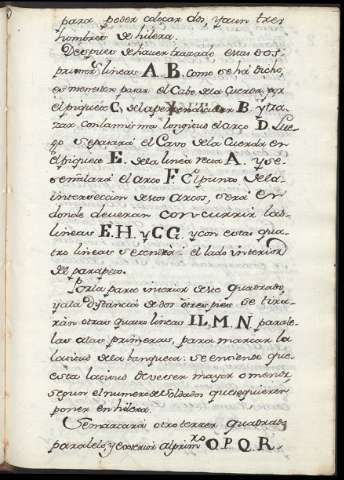 para poder colocar dos, y aun tres
hombres de hilera.
Despues de haver trazado estas dos
primeras lineas A.B. como se ha dicho,
es menester pasar el Cabo de la Cuerda por
el piquete C. de la perpendicular B. y tra-
zar con la misma longitud el arco D. Lue-
go se pasará el Cavo de la Cuerda en
el piquete E. de la linea recta A. y se
señalará el arco F. el punto de la
interseccion de los arcos, será en
donde deveran concurrir las
lineas E.H. y C.G. y con estas qua-
tro lineas se tendrá el lado interior
del parapeto.
Por la parte interior de ese quadrado,
y a la distancia de dos o tres pies se tira-
rán otras quatro lineas I.L.M.N. parale-
las a las primeras, para marcar la
latitud de la banqueta: se entiende que
esta latitud deve ser mayor o menor,
segun el numero de Soldados que se quieren
poner en hilera.
Se marcará otro tercer quadrado
paralelo, y exterior al prim.ro O.P.Q.R.